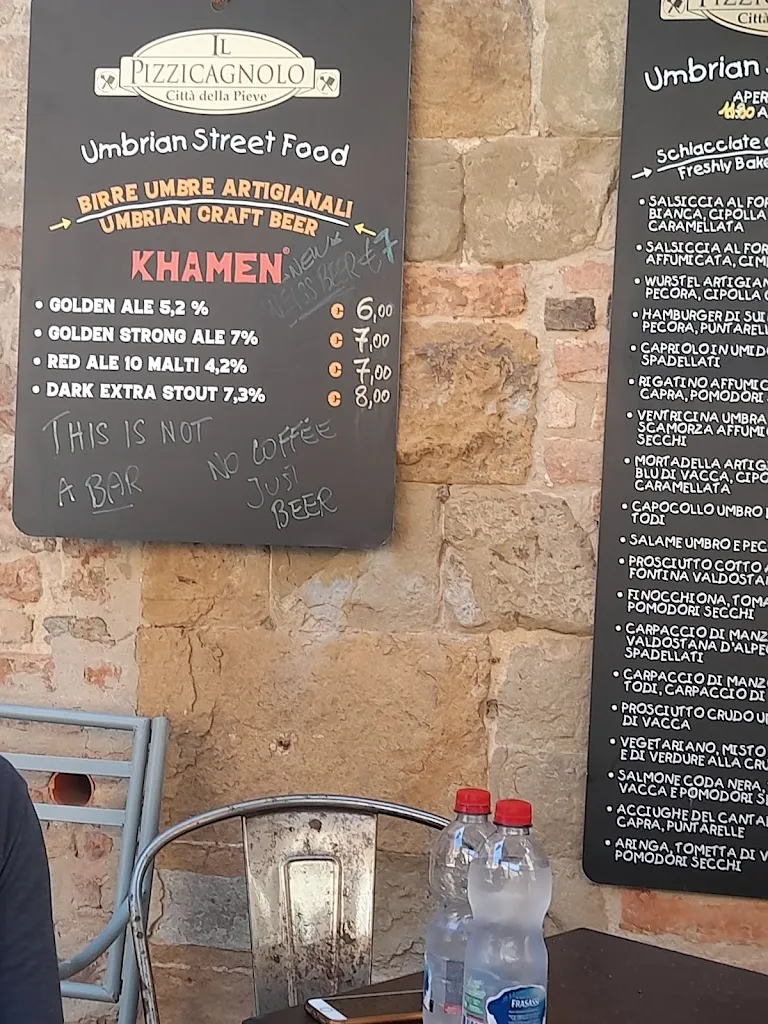 IL
PIZZICAGNOLO
Città della Pieve
Umbrian Street Food
BIRRE UMBRE ARTIGIANALI
UMBRIAN CRAFT BEER
KHAMEN®
NEW
WEISS BEER €7
• GOLDEN ALE 5,2 % € 6,00
• GOLDEN STRONG ALE 7% € 7,00
• RED ALE 10 MALTI 4,2% € 7,00
• DARK EXTRA STOUT 7,3% € 8,00
THIS IS NOT
A BAR
NO COFFEE
JUST
BEER
Città
Umbrian
APER
Schiacciate
Freshly Bake
• SALSICCIA AL FOR
BIANCA, CIPOLLA
CARAMELLATA
• SALSICCIA AL FOR
AFFUMICATA, CIM
• WURSTEL ARTIGIAN
PECORA, CIPOLLA
• HAMBURGER DI SUI
PECORA, PUNTAREL
• CAPRIOLO IN UMID
SPADELLATI
• RIGATINO AFFUMIC
CAPRA, POMODORI
• VENTRICINA UMBRA
SCAMORZA AFFUMI
SECCHI
• MORTADELLA ARTIG
BLU DI VACCA, CIPO
CARAMELLATA
• CAPOCOLLO UMBRO
TODI
• SALAME UMBRO E PEC
• PROSCIUTTO COTTO
FONTINA VALDOSTA
• FINOCCHIONA, TOMA
POMODORI SECCHI
• CARPACCIO DI MANZ
VALDOSTANA D'ALPE
SPADELLATI
• CARPACCIO DI MANZ
TODI, CARPACCIO DI
• PROSCIUTTO CRUDO U
DI VACCA
• VEGETARIANO, MISTO
E DI VERDURE ALLA CRU
• SALMONE CODA NERA,
VACCA E POMODORI S
• ACCIUGHE DEL CANTA
CAPRA, PUNTARELLE
• ARINGA, TOMETTA DI V
POMODORI SECCHI
FRASASSI